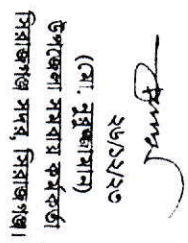 (মো. নুরুজ্জামান)
উপজেলা সমবায় কর্মকর্তা
সিরাজগঞ্জ সদর, সিরাজগঞ্জ।